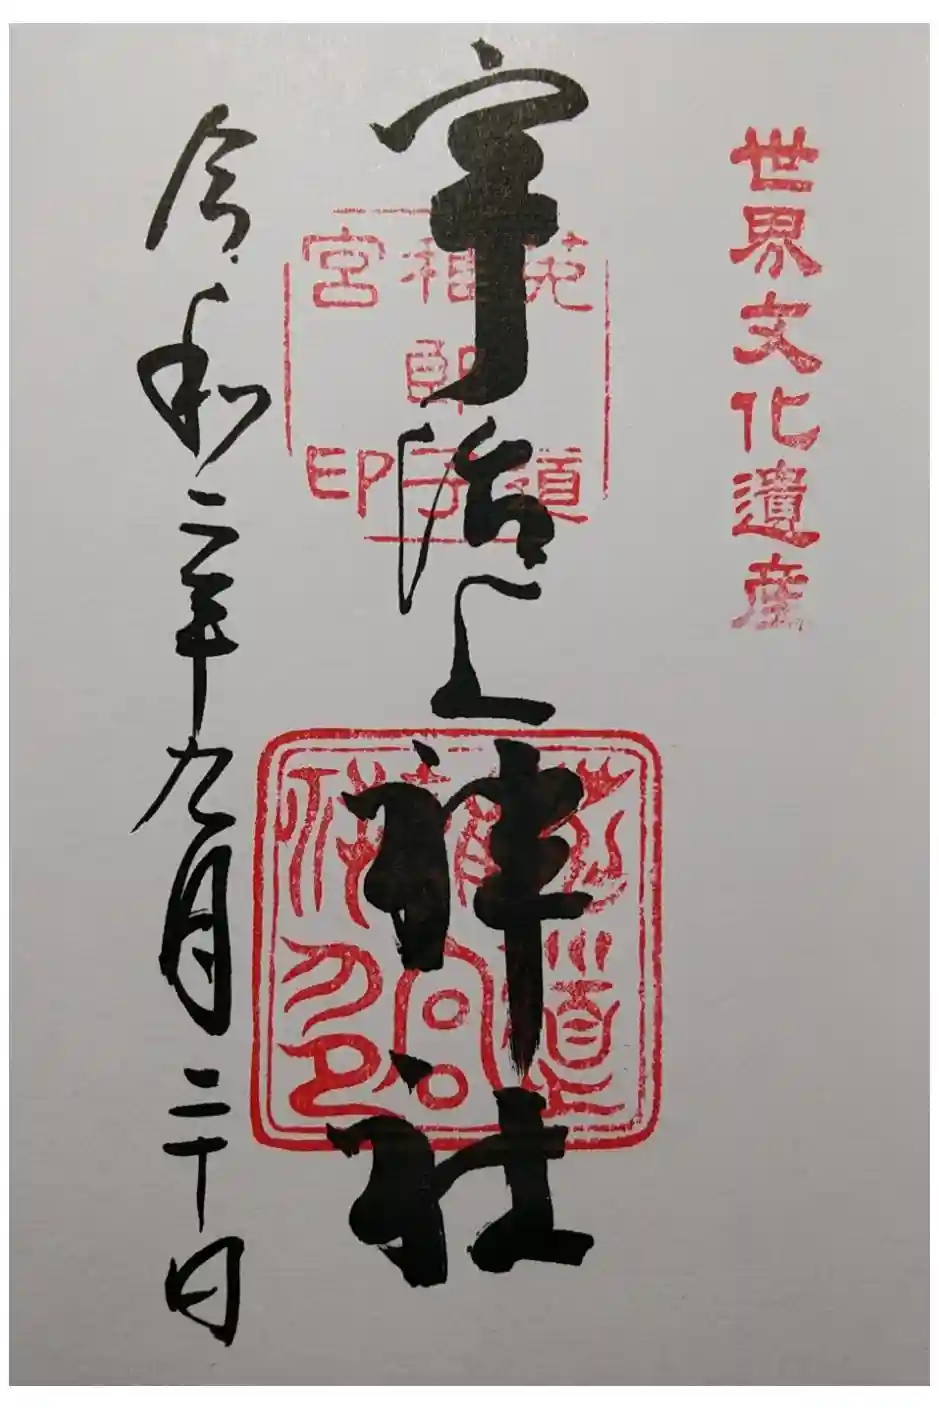 世界文化遺産
菟道
稚郎子
宮印
宇治上神社
令和二年九月二十日